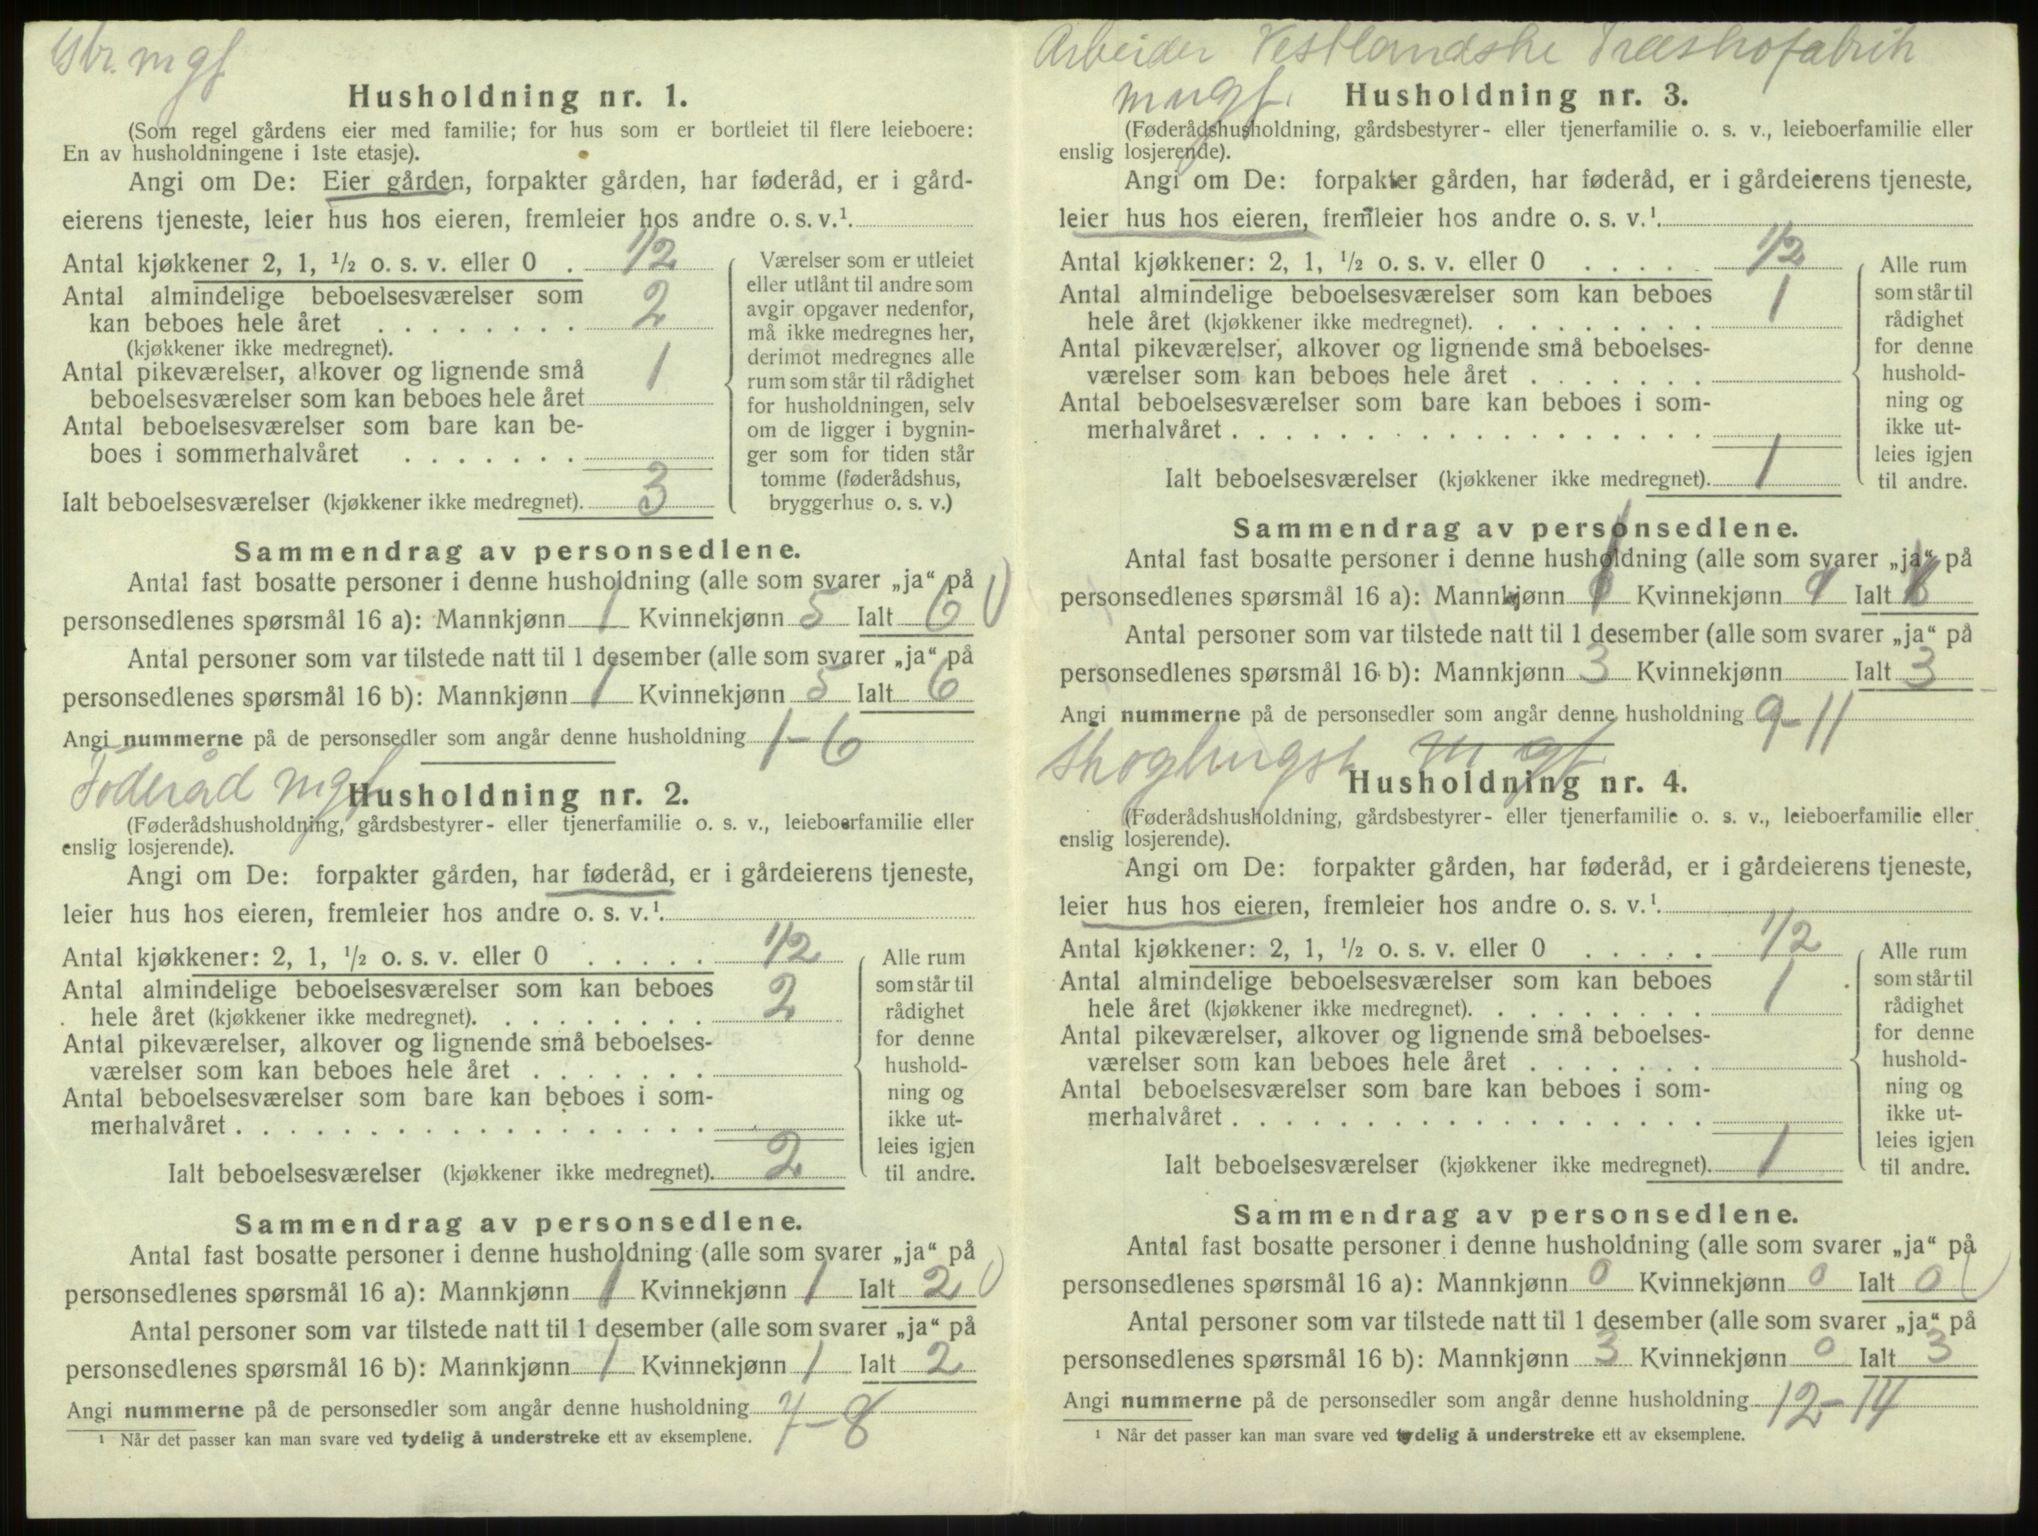 Gbr. mgf
Husholdning nr. 1.
(Som regel gårdens eier med familie; for hus som er bortleiet til flere leieboere:
En av husholdningene i 1ste etasje).
Angi om De: Eier gården, forpakter gården, har føderåd, er i gård-
eierens tjeneste, leier hus hos eieren, fremleier hos andre o. s. v.¹
Antal kjøkkener 2, 1, ½ o. s. v. eller 0 . 1/2
Antal almindelige beboelsesværelser som
kan beboes hele året . . . . . . . . 2
(kjøkkener ikke medregnet).
Antal pikeværelser, alkover og lignende små
beboelsesværelser som kan beboes hele året 1
Antal beboelsesværelser som bare kan be-
boes i sommerhalvåret . . . . . . .
Ialt beboelsesværelser (kjøkkener ikke medregnet). 3
Værelser som er utleiet
eller utlånt til andre som
avgir opgaver nedenfor,
må ikke medregnes her,
derimot medregnes alle
rum som står til rådighet
for husholdningen, selv
om de ligger i bygnin-
ger som for tiden står
tomme (føderådshus,
bryggerhus o. s. v.)
Sammendrag av personsedlene.
Antal fast bosatte personer i denne husholdning (alle som svarer „ja“ på
personsedlenes spørsmål 16 a): Mannkjønn 1 Kvinnekjønn 5 Ialt 6
Antal personer som var tilstede natt til 1 desember (alle som svarer „ja“ på
personsedlenes spørsmål 16 b): Mannkjønn 1 Kvinnekjønn 5 Ialt 6
Angi nummerne på de personsedler som angår denne husholdning 1-6
Føderåd mgf
Husholdning nr. 2.
(Føderådshusholdning, gårdsbestyrer- eller tjenerfamilie o. s. v., leieboerfamilie eller
enslig losjerende).
Angi om De: forpakter gården, har føderåd, er i gårdeierens tjeneste,
leier hus hos eieren, fremleier hos andre o. s. v.¹
Antal kjøkkener: 2, 1, ½ o. s. v. eller 0 . . . . . 1/2
Antal almindelige beboelsesværelser som kan beboes
hele året (kjøkkener ikke medregnet). . . . . . . . . 2
Antal pikeværelser, alkover og lignende små beboelses-
værelser som kan beboes hele året . . . . . . .
Antal beboelsesværelser som bare kan beboes i som-
merhalvåret . . . . . . . . . . . . . . . . . .
Ialt beboelsesværelser (kjøkkener ikke medregnet). 2
Alle rum
som står til
rådighet
for denne
hushold-
ning og
ikke ut-
leies igjen
til andre.
Sammendrag av personsedlene.
Antal fast bosatte personer i denne husholdning (alle som svarer „ja“ på
personsedlenes spørsmål 16 a): Mannkjønn 1 Kvinnekjønn 1 Ialt 2
Antal personer som var tilstede natt til 1 desember (alle som svarer „ja“ på
personsedlenes spørsmål 16 b): Mannkjønn 1 Kvinnekjønn 1 Ialt 2
Angi nummerne på de personsedler som angår denne husholdning 7-8
¹ Når det passer kan man svare ved tydelig å understreke ett av eksemplene.
Arbeider Vestlandske Træskofabrik
Husholdning nr. 3.
(Føderådshusholdning, gårdsbestyrer- eller tjenerfamilie o. s. v., leieboerfamilie eller
enslig losjerende).
Angi om De: forpakter gården, har føderåd, er i gårdeierens tjeneste,
leier hus hos eieren, fremleier hos andre o. s. v.¹
Antal kjøkkener: 2, 1, ½ o. s. v. eller 0 . . . . . 1/2
Antal almindelige beboelsesværelser som kan beboes
hele året (kjøkkener ikke medregnet). . . . . . . . . 1
Antal pikeværelser, alkover og lignende små beboelses-
værelser som kan beboes hele året . . . . . . .
Antal beboelsesværelser som bare kan beboes i som-
merhalvåret . . . . . . . . . . . . . . . . . .
Ialt beboelsesværelser (kjøkkener ikke medregnet). 1
Alle rum
som står til
rådighet
for denne
hushold-
ning og
ikke ut-
leies igjen
til andre.
Sammendrag av personsedlene.
Antal fast bosatte personer i denne husholdning (alle som svarer „ja“ på
personsedlenes spørsmål 16 a): Mannkjønn Kvinnekjønn Ialt
Antal personer som var tilstede natt til 1 desember (alle som svarer „ja“ på
personsedlenes spørsmål 16 b): Mannkjønn 3 Kvinnekjønn Ialt 3
Angi nummerne på de personsedler som angår denne husholdning 9-11
Husholdning nr. 4.
(Føderådshusholdning, gårdsbestyrer- eller tjenerfamilie o. s. v., leieboerfamilie eller
enslig losjerende).
Angi om De: forpakter gården, har føderåd, er i gårdeierens tjeneste,
leier hus hos eieren, fremleier hos andre o. s. v.¹
Antal kjøkkener: 2, 1, ½ o. s. v. eller 0 . . . . . 1/2
Antal almindelige beboelsesværelser som kan beboes
hele året (kjøkkener ikke medregnet). . . . . . . . . 1
Antal pikeværelser, alkover og lignende små beboelses-
værelser som kan beboes hele året . . . . . . .
Antal beboelsesværelser som bare kan beboes i som-
merhalvåret . . . . . . . . . . . . . . . . . .
Ialt beboelsesværelser (kjøkkener ikke medregnet). 1
Alle rum
som står til
rådighet
for denne
hushold-
ning og
ikke ut-
leies igjen
til andre.
Sammendrag av personsedlene.
Antal fast bosatte personer i denne husholdning (alle som svarer „ja“ på
personsedlenes spørsmål 16 a): Mannkjønn 0 Kvinnekjønn 0 Ialt 0
Antal personer som var tilstede natt til 1 desember (alle som svarer „ja“ på
personsedlenes spørsmål 16 b): Mannkjønn 3 Kvinnekjønn 0 Ialt 3
Angi nummerne på de personsedler som angår denne husholdning 12-14
¹ Når det passer kan man svare ved tydelig å understreke ett av eksemplene.